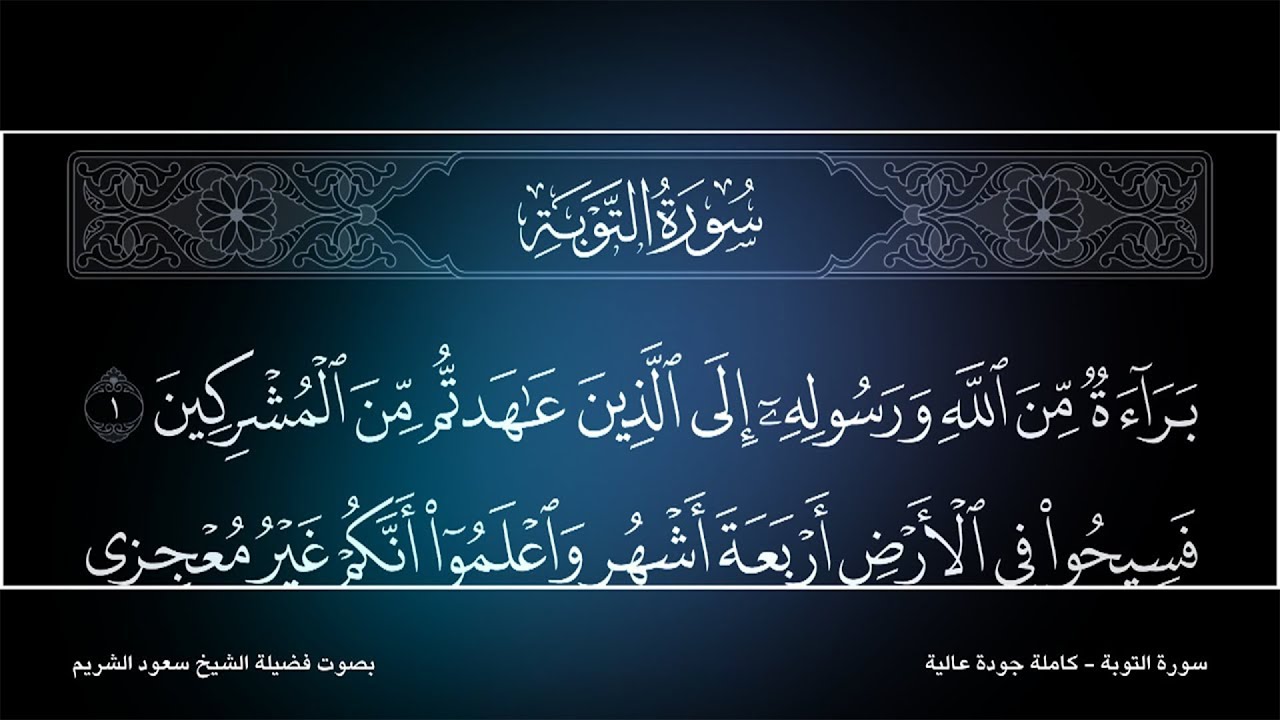 سُورَةُ التَّوْبَةِ
بَرَآءَةٌ مِّنَ ٱللَّهِ وَرَسُولِهِۦٓ إِلَى ٱلَّذِينَ عَٰهَدتُّم مِّنَ ٱلْمُشْرِكِينَ ١
فَسِيحُوا۟ فِى ٱلْأَرْضِ أَرْبَعَةَ أَشْهُرٍ وَٱعْلَمُوٓا۟ أَنَّكُمْ غَيْرُ مُعْجِزِى
سورة التوبة - كاملة جودة عالية
بصوت فضيلة الشيخ سعود الشريم